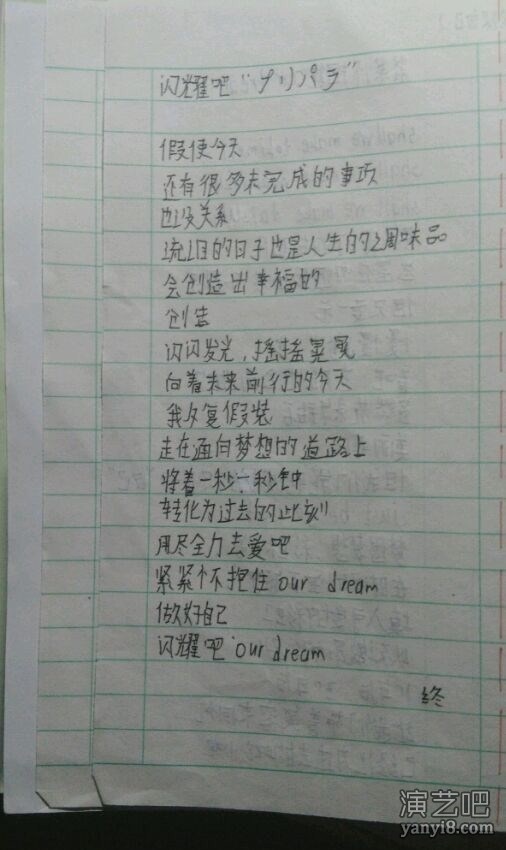 闪耀吧“プリパラ”
假使今天
还有很多未完成的事项
也没关系
日的日子也是人生的调味品
会创造出幸福的
创造
闪闪发光,摇摇晃晃
向着未来前行的今天
我反复假装
走在面向梦想的道路上
将着一秒一秒钟
转化为过去的此刻
用尽全力去爱吧
紧紧个不抱住our dream
做好自己
闪耀吧our dream
终
演艺吧
yanyi8.com